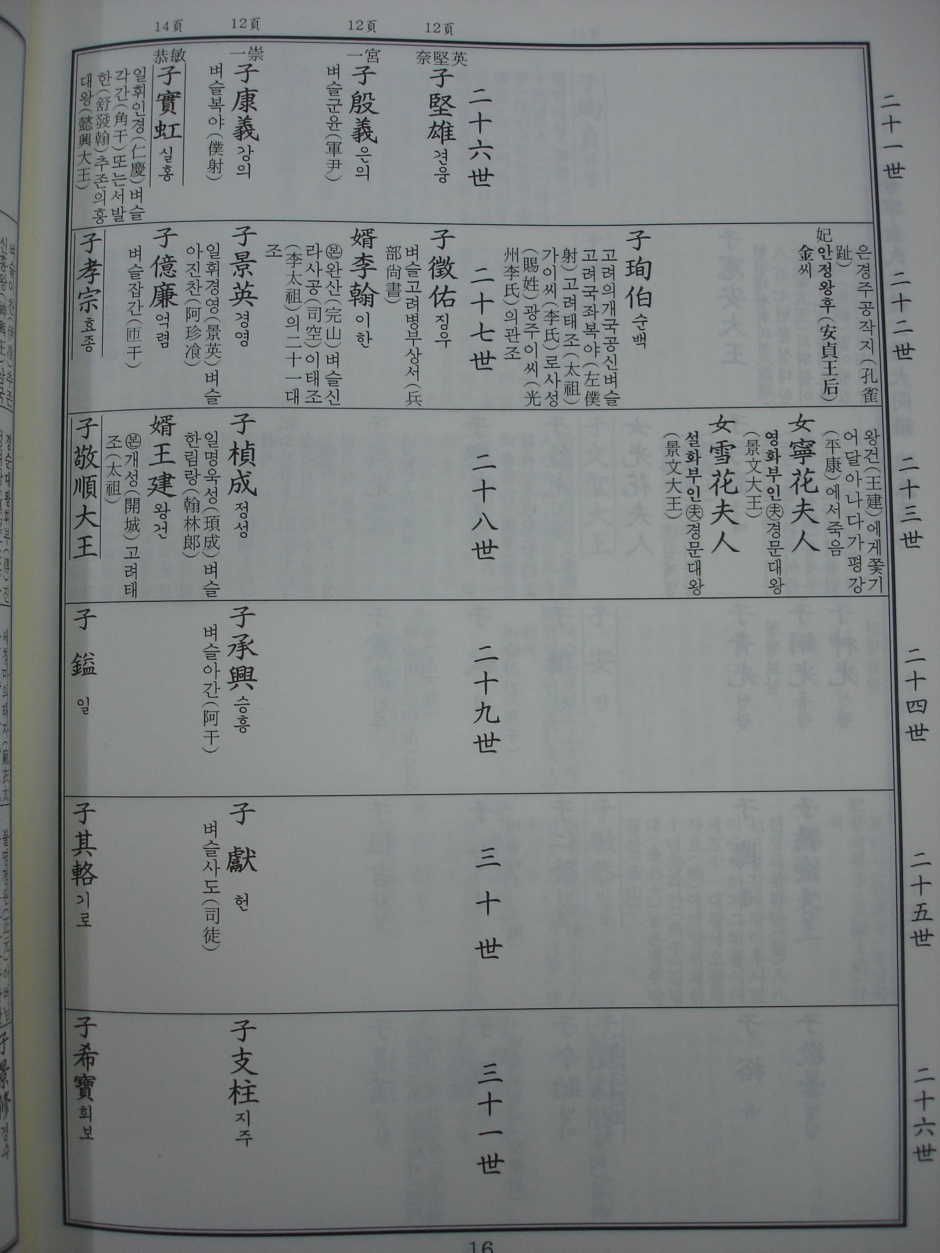 二十一世
은경주공작지(孔雀
趾)
妃안정왕후(安貞王后)
金씨
二十二世
왕건(王建)에게쫓기
어달아나다가평강
(平康)에서죽음
女寧花夫人
영화부인㊛경문대왕
(景文大王)
女雪花夫人
설화부인㊛경문대왕
(景文大王)
二十三世
二十四世
二十五世
二十六世
12頁
英堅奈
子堅雄견웅
12頁
宮一
子殷義은의
벼슬군윤(軍尹)
12頁
崇一
子康義강의
벼슬복야(僕射)
14頁
敏恭
子實虹실홍
일휘인경(仁慶)벼슬
각간(角干)또는서발
한(舒發翰)추존의흥
대왕(懿興大王)
二十六世
子珣伯순백
고려의개국공신벼슬
고려국좌복야(左僕
射)고려태조(太祖)
가이씨(李氏)로사성
(賜姓)광주이씨(光
州李氏)의관조
二十七世
子徵佑징우
벼슬고려병부상서(兵
部尙書)
婿李翰이한
㊎완산(完山)벼슬신
라사공(司空)이태조
(李太祖)의二十一대
조
子景英경영
일휘경영(景英)벼슬
아진찬(阿珍飡)
子億廉억렴
벼슬잡간(匝干)
子孝宗효종
二十八世
子楨成정성
일명욱성(頊成)벼슬
한림랑(翰林郎)
婿王建왕건
개성(開城)고려태
조(太祖)
子敬順大王
二十九世
子承興승흥
벼슬아간(阿干)
子鎰일
三十世
子獻헌
벼슬사도(司徒)
子其輅기로
三十一世
子支柱지주
子希寶희보
16